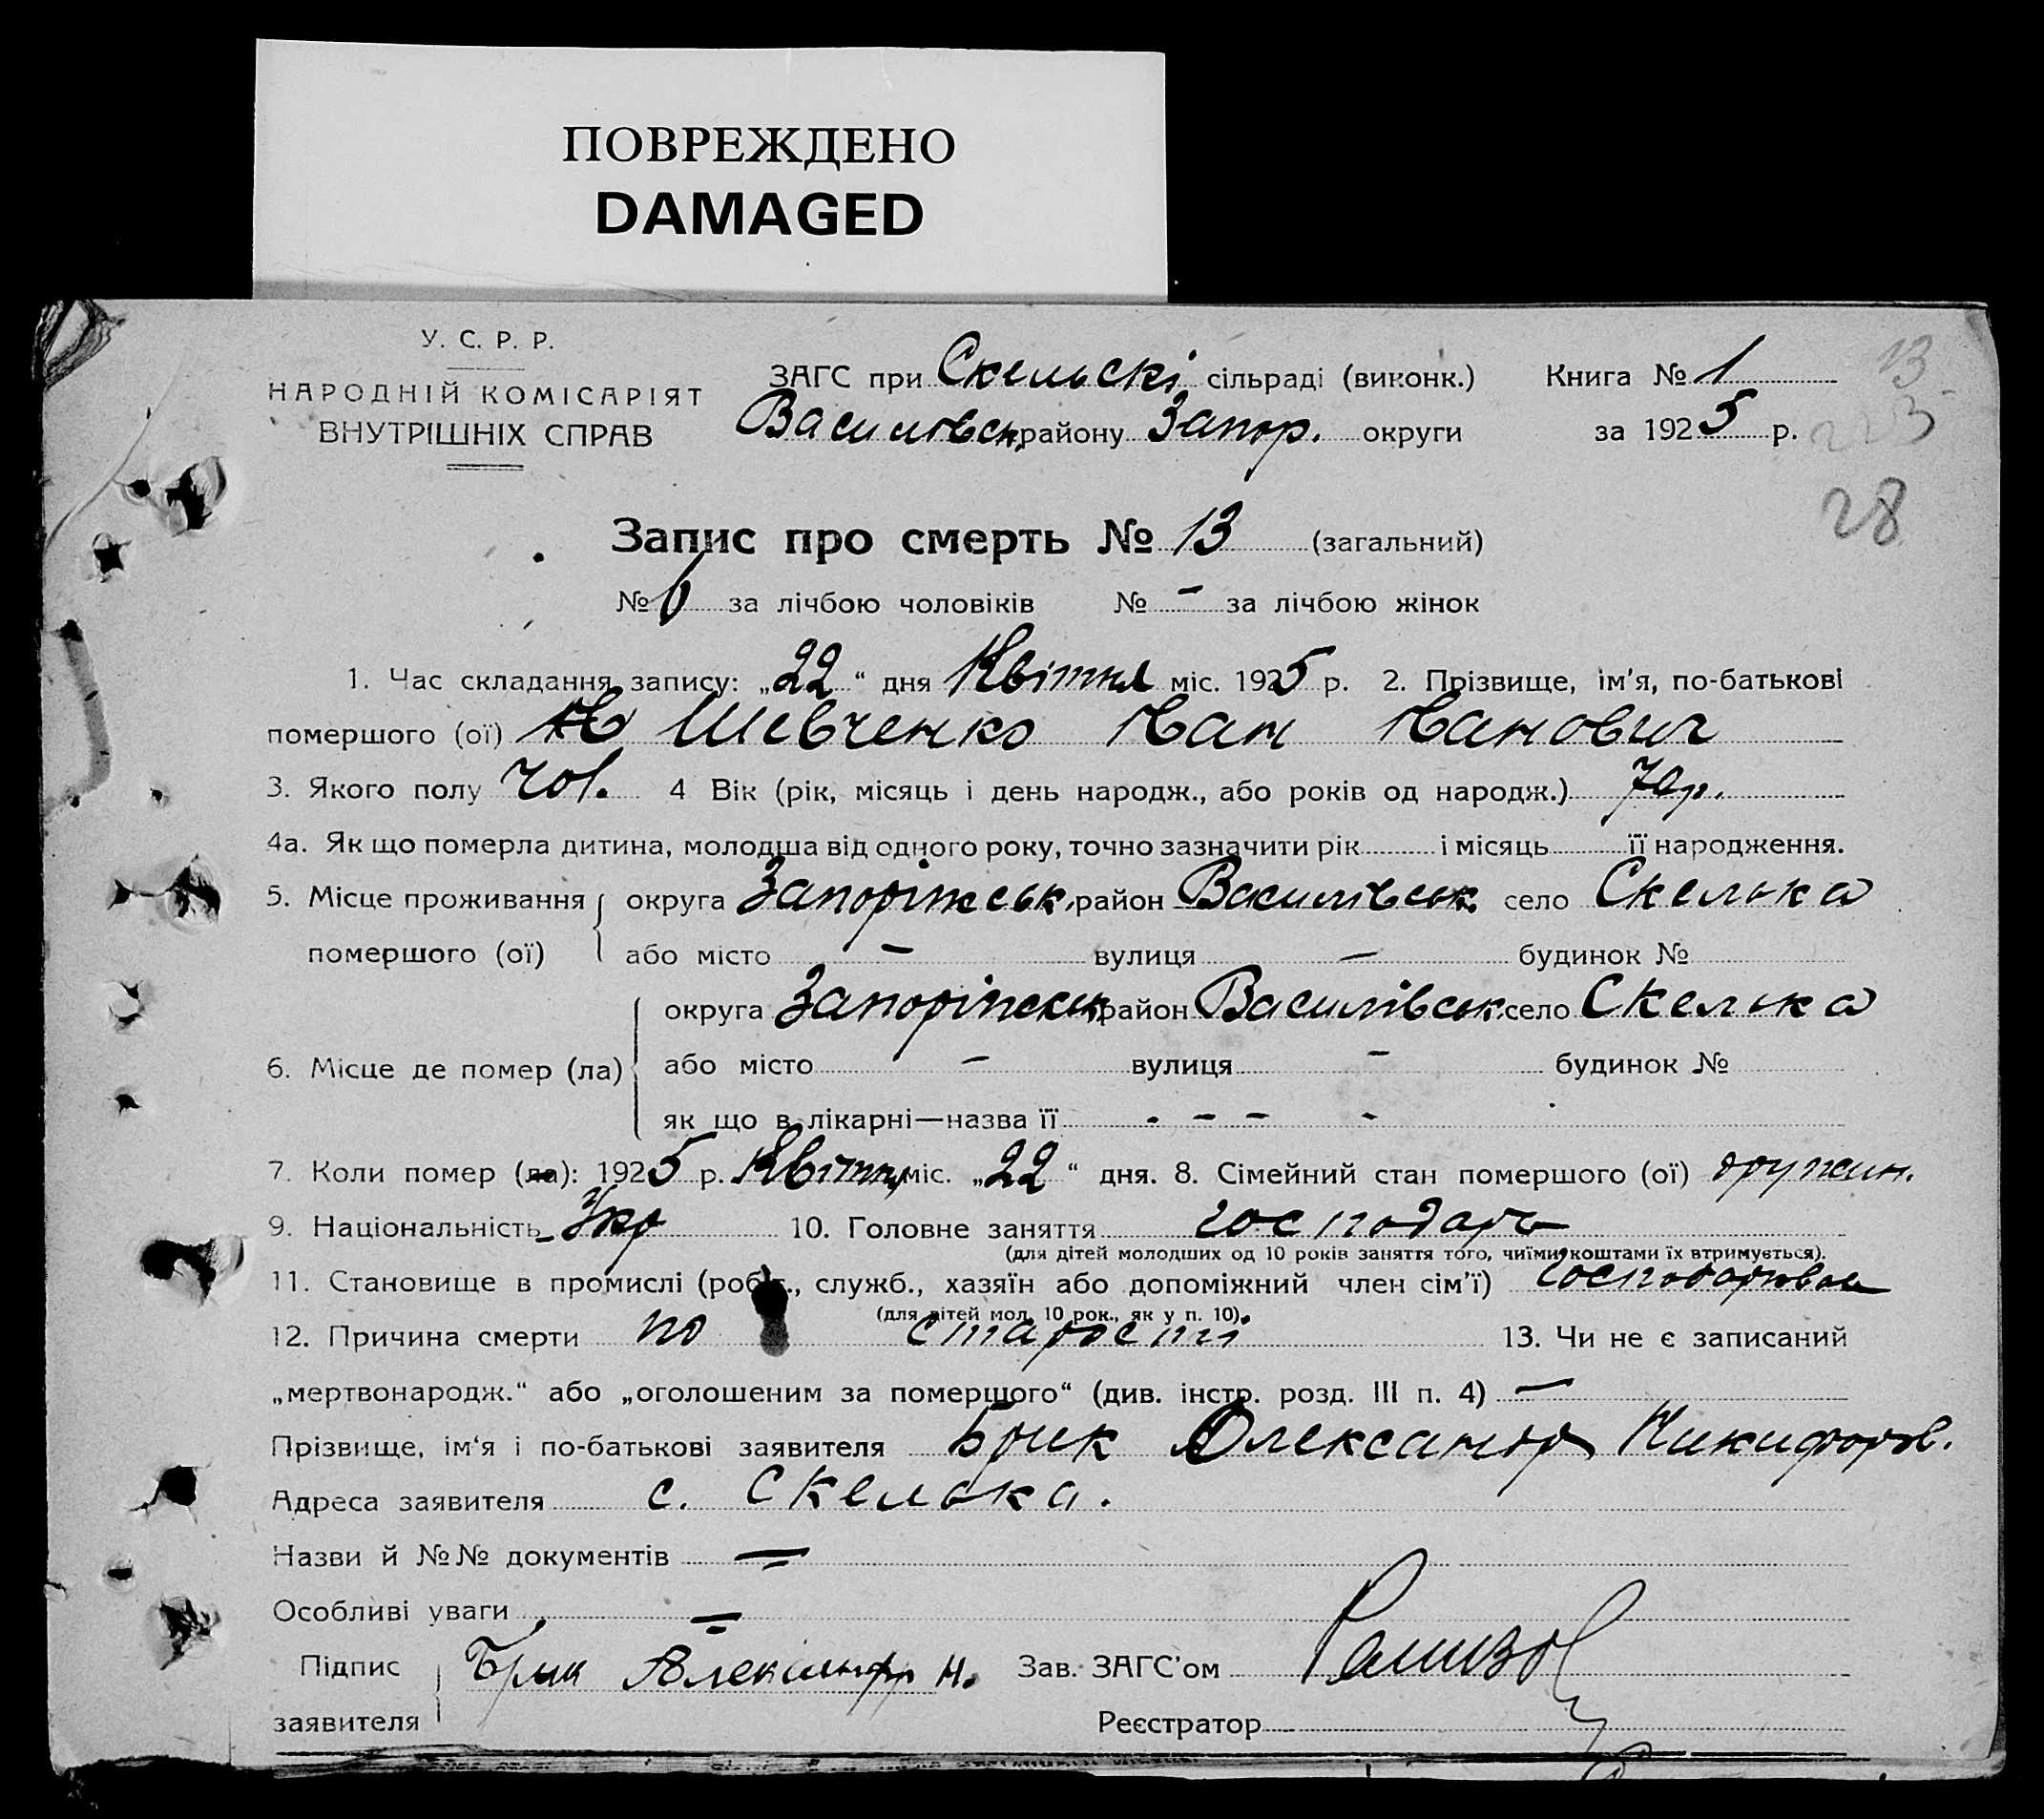 ПОВРЕЖДЕНО
DAMAGED
У. С. Р. Р.
НАРОДНІЙ КОМІСАРІЯТ
ВНУТРІШНІХ СПРАВ
ЗАГС при Скельскі сільраді (виконк.)
Василівськ. району Запор. округи
Книга № 1
за 1925 р.
13
28
Запис про смерть № 13 (загальний)
№ 6 за лічбою чоловіків № - за лічбою жінок
1. Час складання запису: „22“ дня Квітня міс. 1925 р. 2. Прізвище, ім'я, по-батькові
помершого (ої) Шевченко Іван Іванович
3. Якого полу чол. 4 Вік (рік, місяць і день народж., або років од народж.) 70 р.
4а. Як що померла дитина, молодша від одного року, точно зазначити рік і місяць її народження.
5. Місце проживання округа Запоріжськ. район Василівськ. село Скелька
помершого (ої) або місто — вулиця — будинок №
округа Запоріжськ. район Василівськ. село Скелька
6. Місце де помер (ла) або місто - вулиця - будинок №
як що в лікарні—назва її - - - -
7. Коли помер (ла): 1925 р. Квітня міс. „22“ дня. 8. Сімейний стан помершого (ої) дружин.
9. Національність Укр 10. Головне заняття господарь
(для дітей молодших од 10 років заняття того, чиїми коштами їх втримується).
11. Становище в промислі (робіт., служб., хазяїн або допоміжний член сім'ї)
(для дітей мол. 10 рок., як у п. 10).
12. Причина смерти по старости 13. Чи не є записаний
„мертвонародж.“ або „оголошеним за помершого“ (див. інстр. розд. III п. 4) —
Прізвище, ім'я і по-батькові заявителя Брик Олександр Никифоров.
Адреса заявителя с. Скелька.
Назви й №№ документів —
Особливі уваги —
Підпис Брик Александр Н. Зав. ЗАГС'ом
заявителя Реєстратор